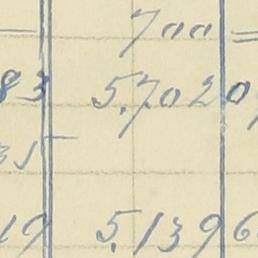 700
83 5.702 0
35 —
19 5.139 6